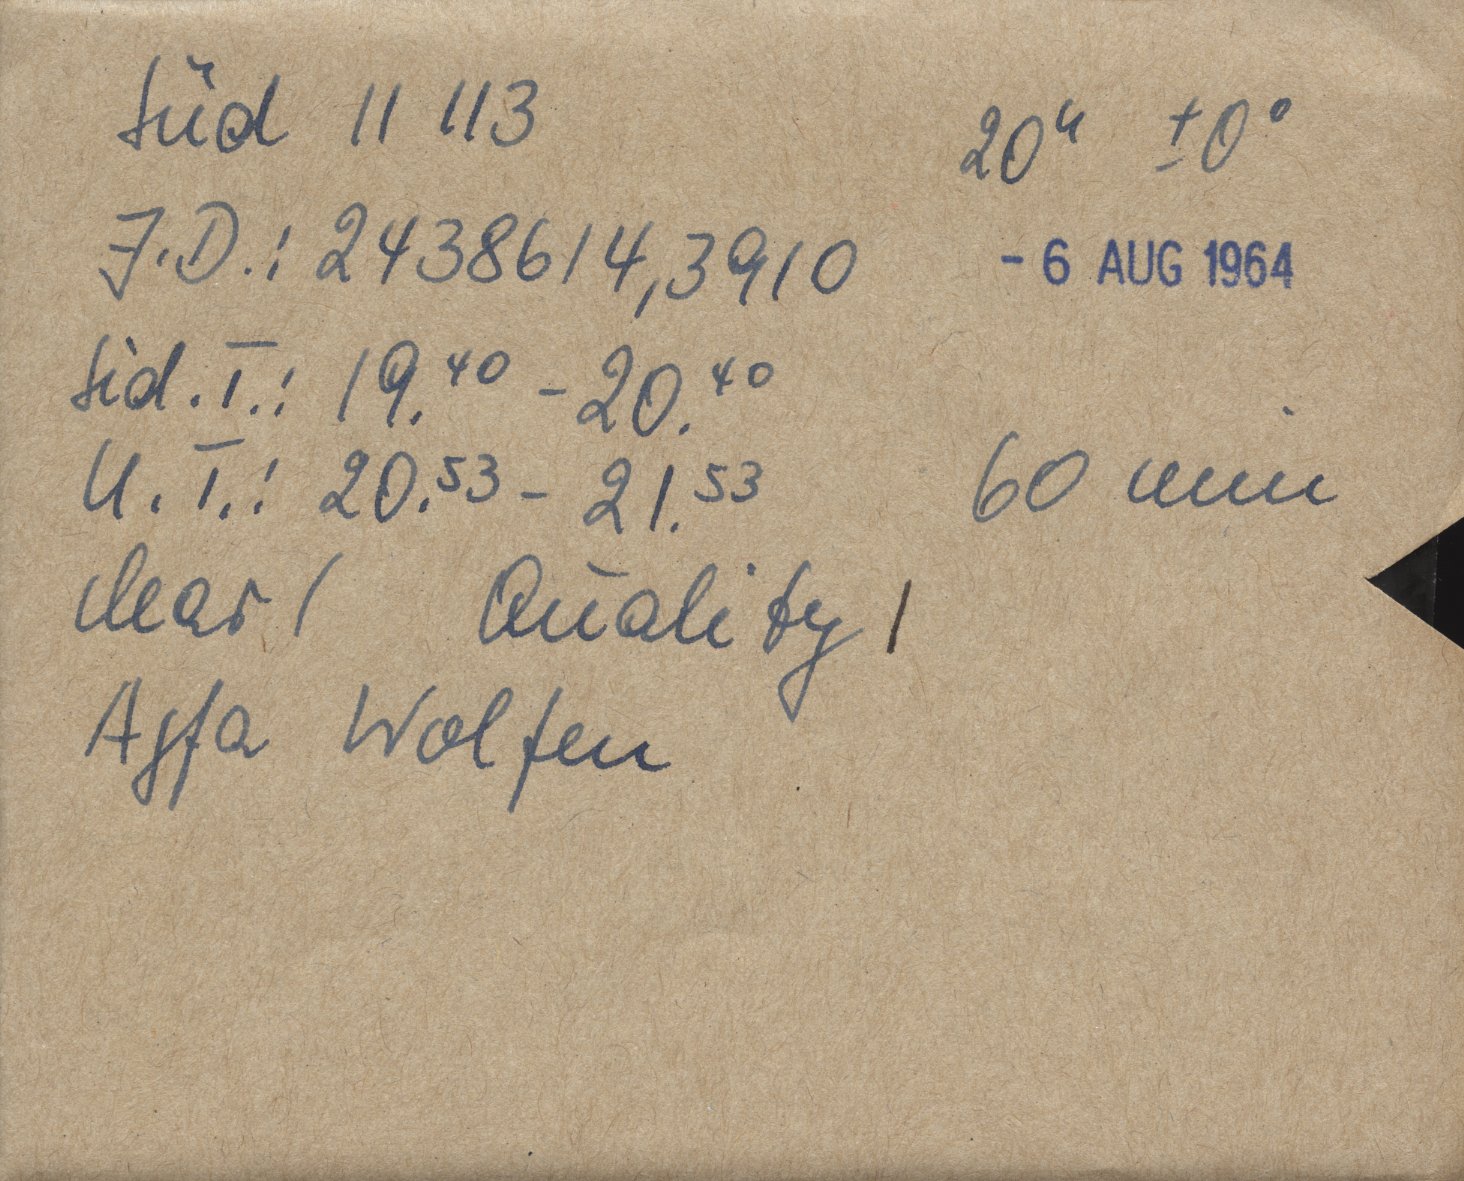 Süd 11 113 20ʰ ±0°
J.D.: 2438614,3910 - 6 AUG 1964
Sid.T.: 19.⁴⁰ - 20.⁴⁰
U.T.: 20.⁵³ - 21.⁵³ 60 min
clear! Quality 1
Agfa Wolfen